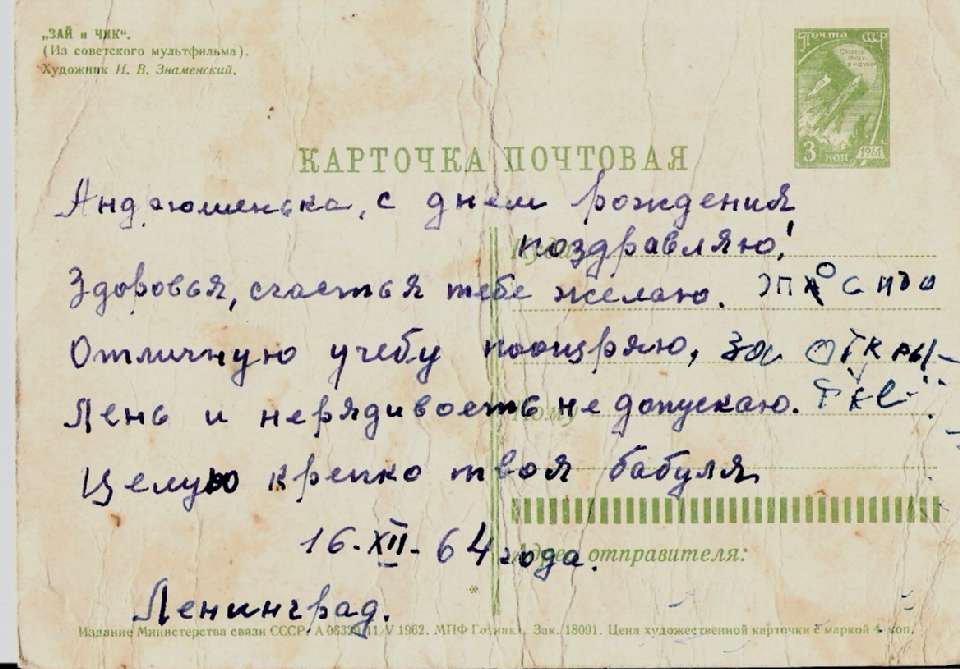 „ЗАЙ и ЧИК“.
(Из советского мультфильма).
Художник И. В. Знаменский.
Почта СССР
3 коп 1961
КАРТОЧКА ПОЧТОВАЯ
Андрюшенька, с днем рождения
поздравляю!
Здоровья, счастья тебе желаю.
Отличную учебу поощряю, за откры-
Лень и нерядивость не допускаю.
Целую крепко твоя бабуля
16-XII-64 года.
Адрес отправителя:
Ленинград.
Издание Министерства связи СССР. 11/V 1962. МПФ Гознака. Зак. 18091. Цена художественной карточки с маркой 4 коп.